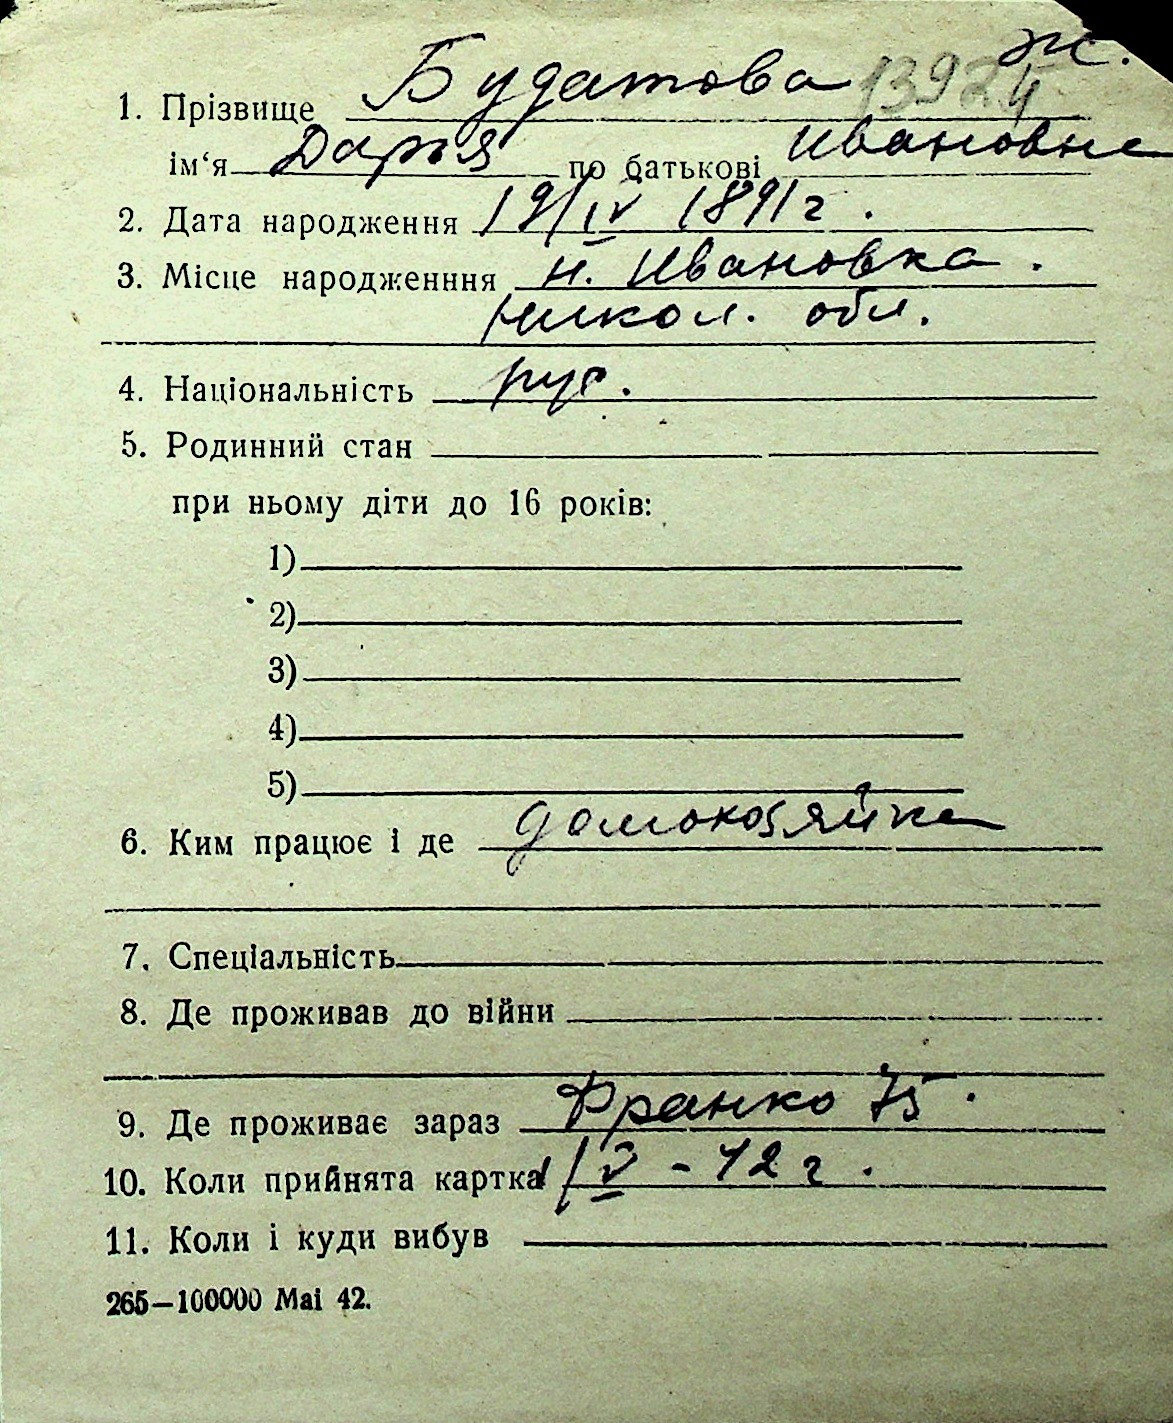 ж.
13924
1. Прізвище Будатова
ім‘я Дарья по батькові Ивановне
2. Дата народження 19/IV 1891 г.
3. Місце народженння н. Ивановка.
Никол. обл.
4. Національність рус.
5. Родинний стан
при ньому діти до 16 років:
1)
2)
3)
4)
5)
6. Ким працює і де домохозяйка
7. Спеціальність
8. Де проживав до війни
9. Де проживає зараз Франко 75.
10. Коли прийнята картка 1/V - 42 г.
11. Коли і куди вибув
265—100000 Mai 42.